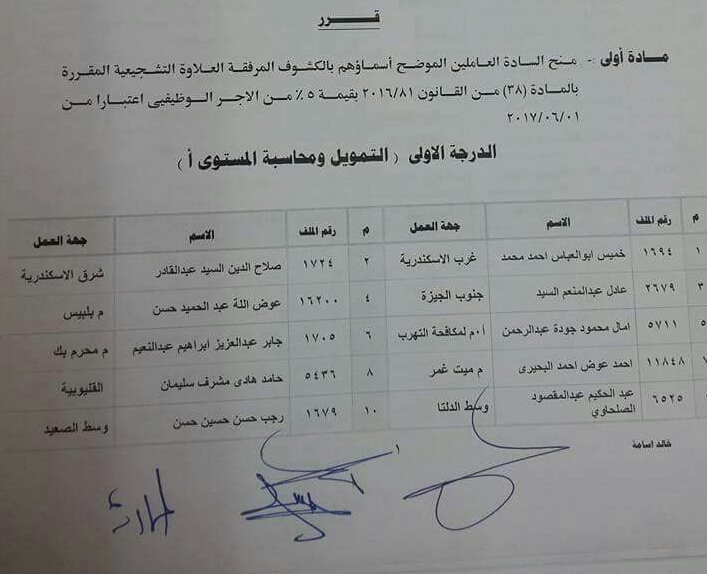 قــرر
مــادة أولى :- منح السادة العاملين الموضح أسماؤهم بالكشوف المرفقة العلاوة التشجيعية المقررة
بالمادة (٣٨) من القانون ٢٠١٦/٨١ بقيمة ٥ ٪ من الاجر الوظيفي اعتبارا من
٢٠١٧/٠٦/٠١
الدرجة الاولى ( التمويل ومحاسبة المستوى أ )
م رقم الملف الاسم جهة العمل م رقم الملف الاسم جهة العمل
١ ١٦٩٤ خميس ابوالعباس احمد محمد غرب الاسكندرية ٢ ١٧٢٤ صلاح الدين السيد عبدالقادر شرق الاسكندرية
٣ ٢٦٧٩ عادل عبدالمنعم السيد جنوب الجيزة ٤ ١٦٢٠٠ عوض اللة عبد الحميد حسن م بلبيس
٥ ٥٧١١ امال محمود جودة عبدالرحمن أ.م لمكافحة التهرب ٦ ١٧٠٥ جابر عبدالعزيز ابراهيم عبدالنعيم م محرم بك
١١٨٤٨ احمد عوض احمد البحيرى م ميت غمر ٨ ٥٤٣٦ حامد هادى مشرف سليمان القليوبية
٦٥٢٥ عبد الحكيم عبدالمقصود الصلحاوي وسط الدلتا ١٠ ١٦٧٩ رجب حسن حسين حسن وسط الصعيد
خالد اسامة